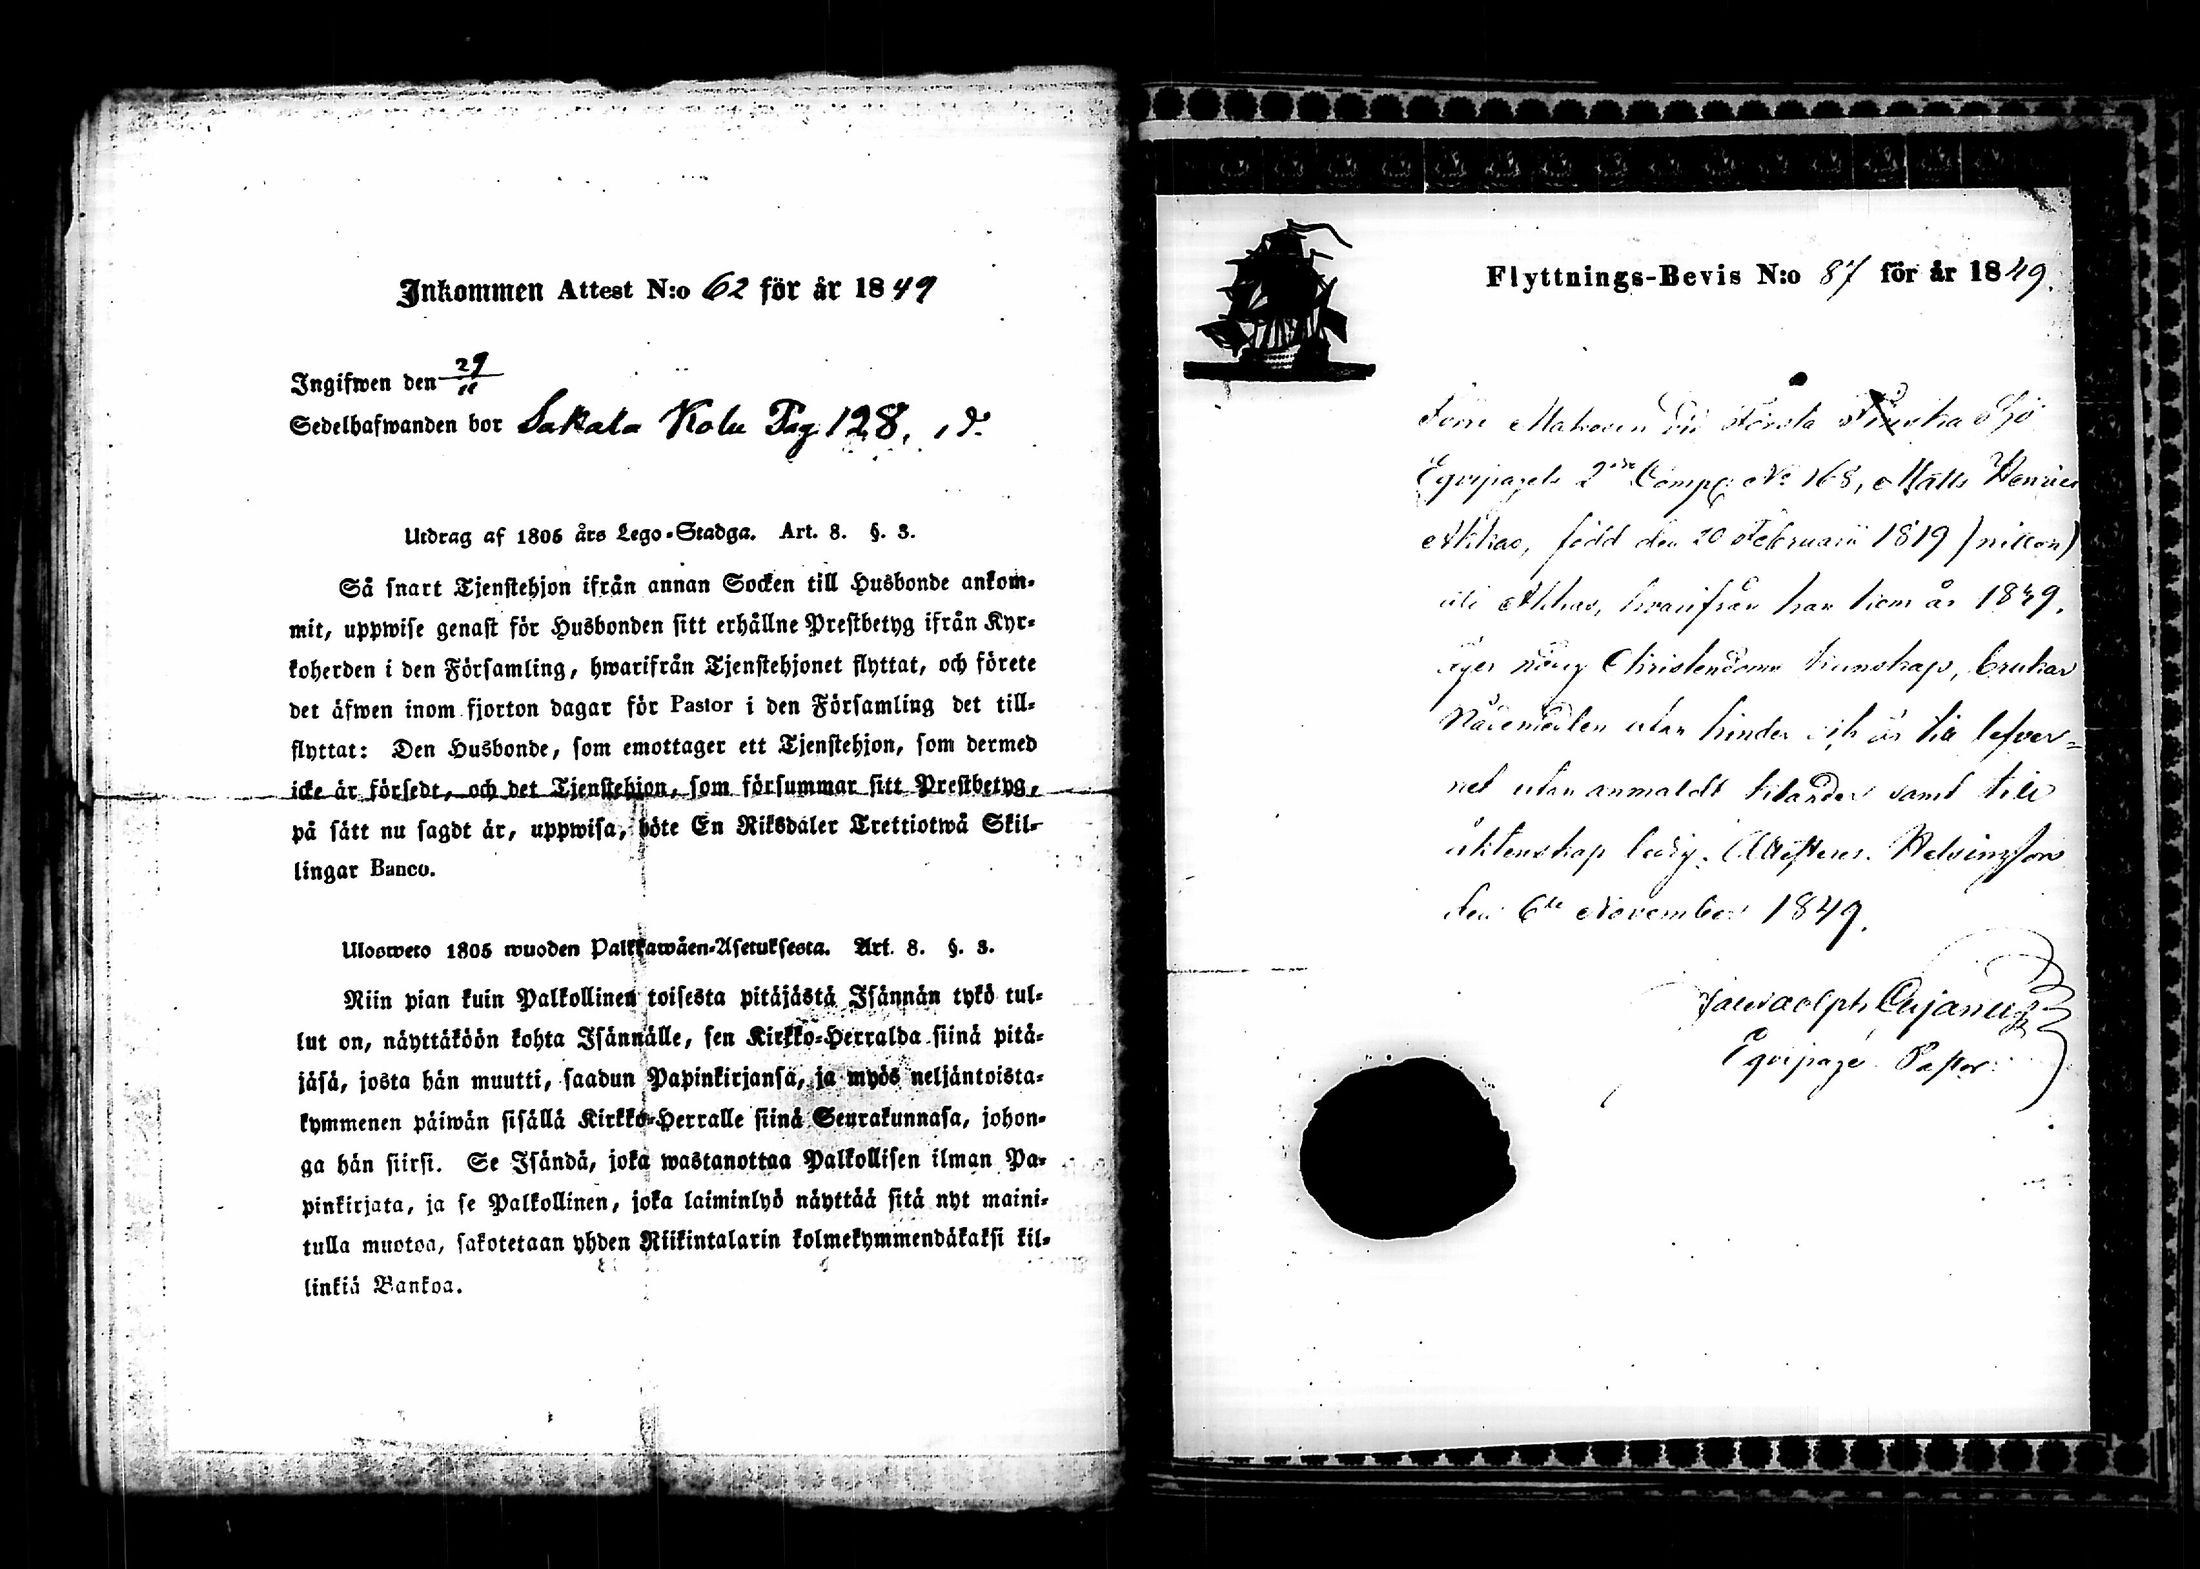 Inkommen Attest N:o 62 för år 1849
Ingifwen den 29/11
Sedelhafwanden bor Sakala Kolu Pag 128.
Utdrag af 1805 års Lego-Stadga. Art. 8. §. 3.
Så snart Tjenstehjon ifrån annan Socken till Husbonde ankom-
mit, uppwise genast för Husbonden sitt erhållne Prestbetyg ifrån Kyr-
koherden i den Församling, hwarifrån Tjenstehjonet flyttat, och förete
det äfwen inom fjorton dagar för Pastor i den Församling det till-
flyttat: Den Husbonde, som emottager ett Tjenstehjon, som dermed
icke är försedt, och det Tjenstehjon, som försummar sitt Prestbetyg,
på sätt nu sagdt är, uppwisa, böte En Riksdaler Trettiotwå Skil-
lingar Banco.
Ulosweto 1805 wuoden Palkkawäen-Asetuksesta. Art. 8. §. 3.
Niin pian kuin Palkollinen toisesta pitäjästä Isännän tykö tul-
lut on, näyttäköön kohta Isännälle, sen Kirkko-Herralda siinä pitä-
jäsä, josta hän muutti, saadun Papinkirjansa, ja myös neljäntoista-
kymmenen päiwän sisällä Kirkko-Herralle siinä Seurakunnasa, johon-
ga hän siirsi. Se Isändä, joka wastanottaa Palkollisen ilman Pa-
pinkirjata, ja se Palkollinen, joka laiminlyö näyttää sitä nyt maini-
tulla muotoa, sakotetaan yhden Riikintalarin kolmekymmendäkaksi kil-
linkiä Bankoa.
Flyttnings-Bevis N:o 87 för år 1849.
Förre Matrosen vid Första Finska Sjö
Eqvipagets 2dra Comp: No 168, Matts Henrics
Akkas, född den 20 Februarii 1819 (nitton)
uti Akkas, hvarifrån han kom år 1849.
äger nöjig Christendoms kunskap, brukar
Nådemedlen utan hinder och är till lefver-
net utan anmäldt klander samt till
äktenskap ledig. Attesteras. Helsingfors
den 6te November 1849.
Eqvipage Pastor.